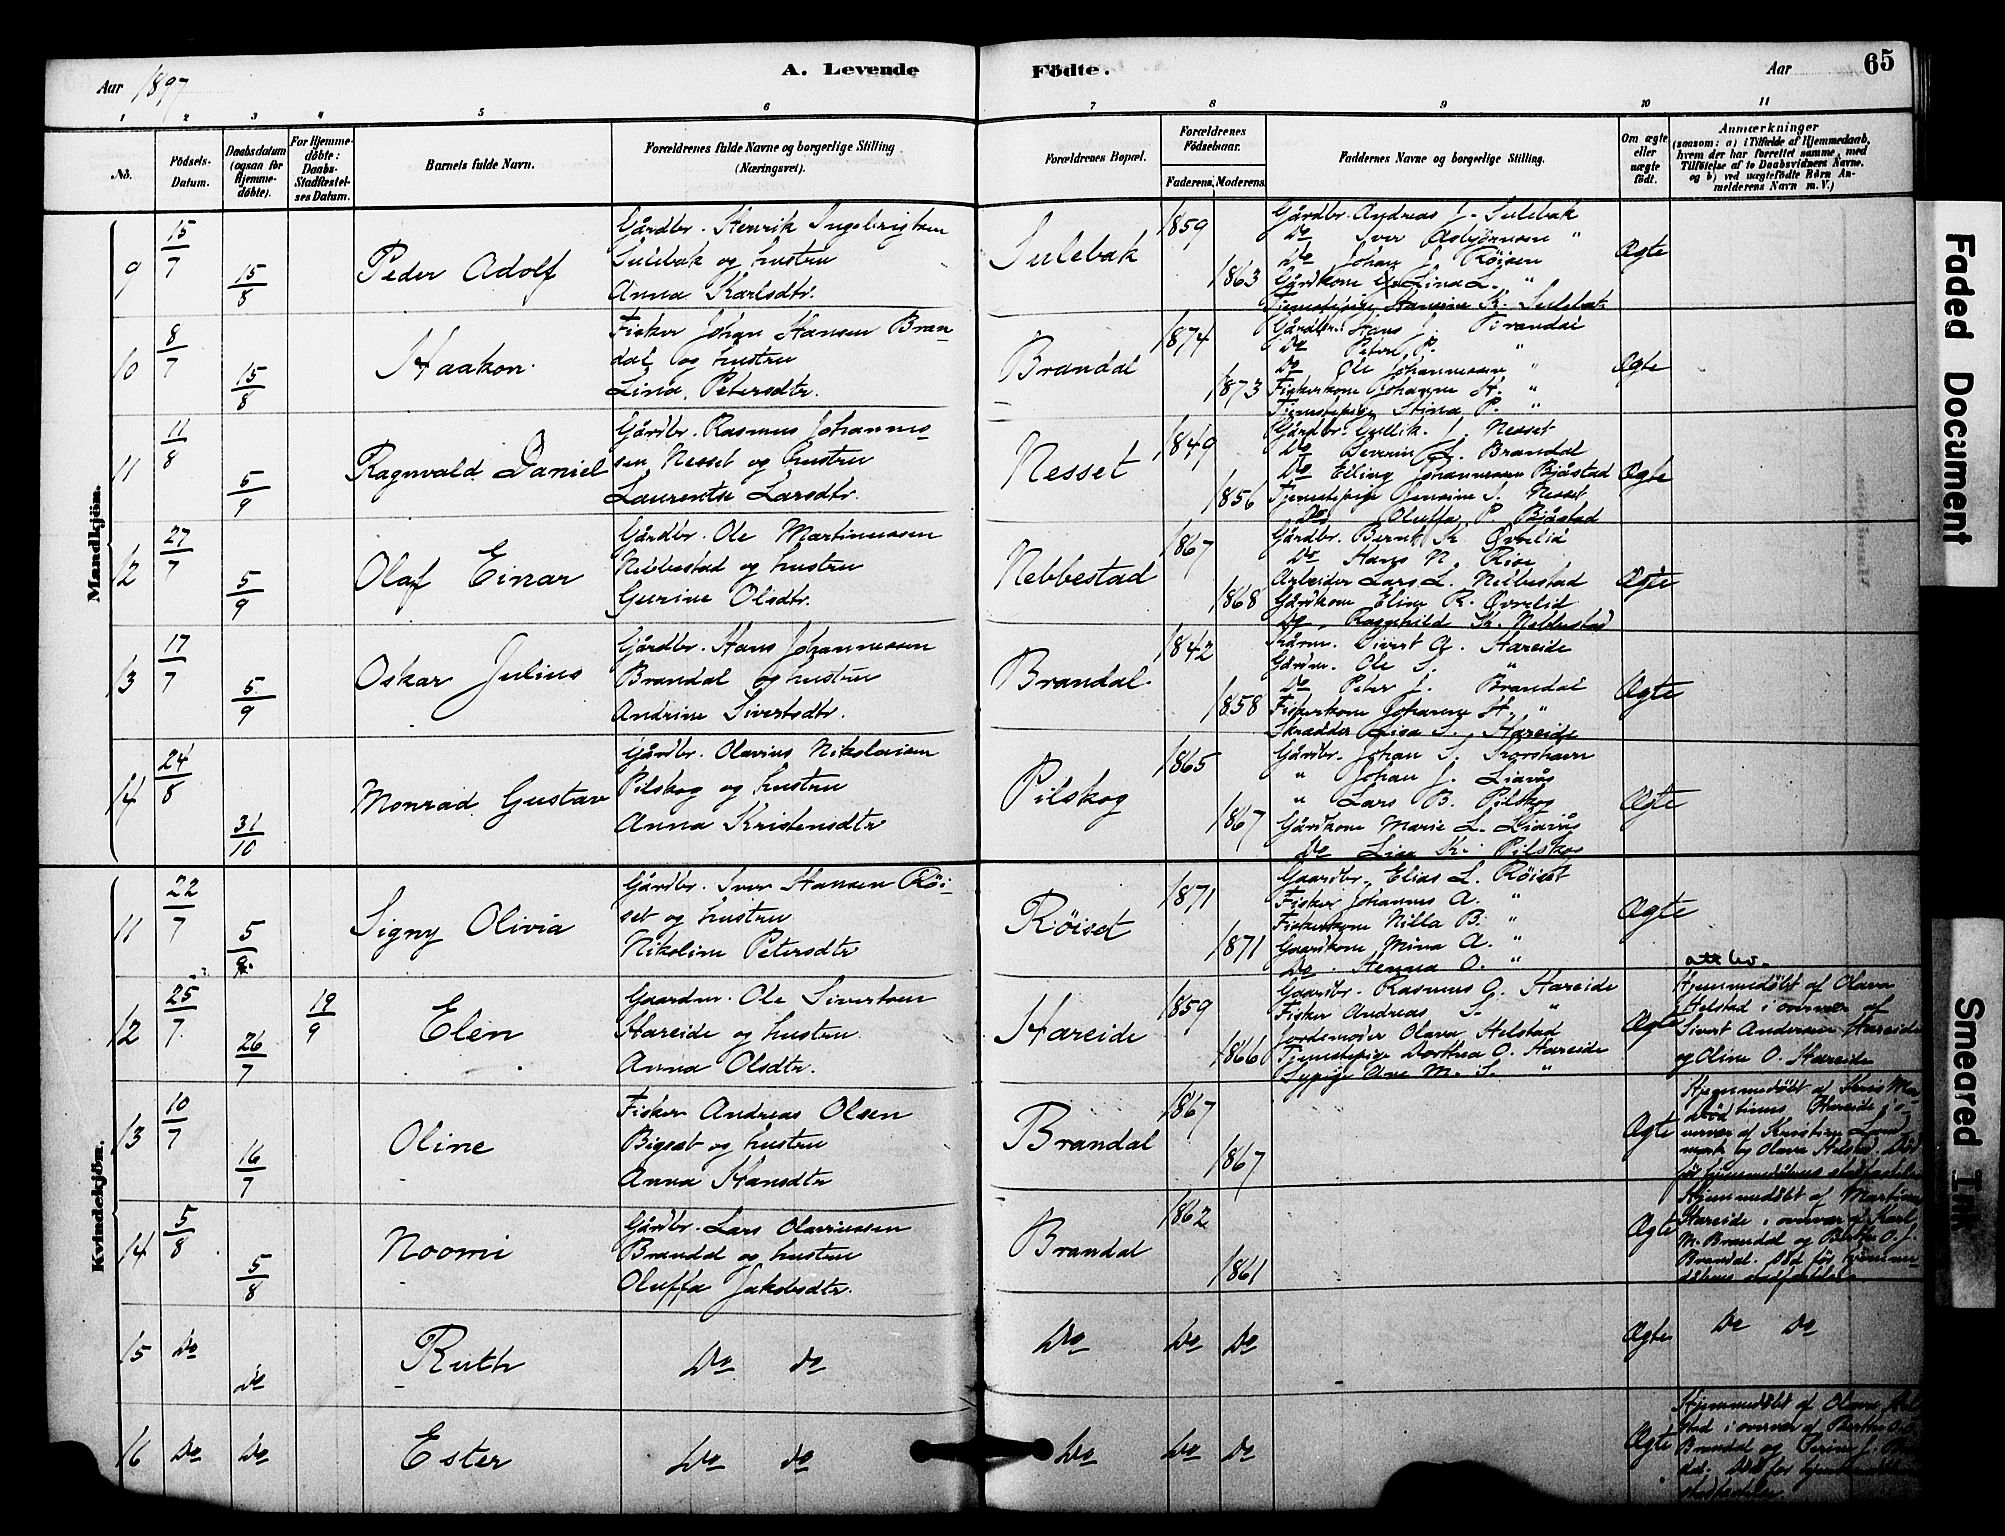 Aar 1897
A. Levende Födte.
Aar
65
1 2 3 4 5 6 7 8 9 10 11
No.
Födsels-Datum.
Daabsdatum (ogsaa for Hjemme-döbte).
For Hjemme-döbte: Daabs-Stadfæstel-ses Datum.
Barnets fulde Navn.
Forældrenes fulde Navne og borgerlige Stilling (Næringsvei).
Forældrenes Bopæl.
Forældrenes Födselsaar.
Faderens. Moderens.
Faddernes Navne og borgerlige Stilling.
Om ægte eller uægte födt.
Anmærkninger
(saasom: a) i Tilfælde af Hjemmedaab,
hvem der har forrettet samme, med
Tilföielse af to Daabsvidners Navne,
og b) ved uægtefödte Börn An-
melderens Navn m. V.)
Mandkjön.
9 15/7 15/8 Peder Adolf
Gårdbr. Henrik Ingebrigtsen
Sulebak og hustru
Anna Karlsdtr.
Sulebak 1859 1863
Gårdbr. Andreas J. Sulebak
Do Iver Asbjörnsen "
Do Johan J. Röisen
Gårdkone Lina L. "
Tjenestepige Hansine K. Sulebak
Ægte
10 8/7 15/8 Haakon.
Fisker Johan Hansen Bran-
dal og hustru
Lina Petersdtr.
Brandal 1874 1873
Gårdbr. Hans J. Brandal
Do Peter P. "
Do Ole Johannessen "
Fiskerkone Johanne H. "
Tjenestepige Stina P. "
Ægte
11 11/8 5/9 Ragnvald Daniel
Gårdbr. Rasmus Johannes-
sen Nesset og hustru
Laurentse Larsdtr.
Nesset 1849 1856
Gårdbr. Gullik J. Nesset
Do Severin L. Brandal
Do Elling Johannessen Bjåstad
Tjenestepige Jensine S. Nesset
Do Oluffa P. Bjåstad
Ægte
12 27/7 5/9 Olaf Einar
Gårdbr. Ole Martinussen
Nebbestad og hustru
Gurine Olsdtr.
Nebbestad 1867 1868
Gårdbr. Bernt K. Øvrelid
Do Hans N. Rise
Arbeider Lars L. Nebbestad
Gårdkone Eline R. Øvrelid
Do Ragnhild K. Nebbestad
Ægte
13 17/7 5/9 Oskar Julius
Gårdbr. Hans Johannessen
Brandal og hustru
Andrine Sivertsdtr.
Brandal. 1842 1858
Kårm. Sivert A. Hareide
Gårdm. Ole S. "
Do Peter J. Brandal
Fiskerkone Johanne H. "
Skrædder Lisa S. Hareide
Ægte
14 24/8 31/10 Monrad Gustav
Gårdbr. Olavius Nikolaisen
Pilskog og hustru
Anna Kristensdtr
Pilskog 1865 1867
Gårdbr. Johan S. Korshavn
" Johan J. Liavåg
" Lars B. Pilskog
Gårdkone Marie L. Liavåg
Do Lina K. Pilskog
Ægte
Kvindekjön.
11 22/7 5/9 Signy Olivia
Gårdbr. Iver Hansen Röi-
set og hustru
Nikoline Petersdtr
Röiset 1871 1871
Gaardbr. Elias L. Röiset
Fisker Johannes A. "
Fiskerkone Nilla B. "
Gaardkone Mina A. "
Do Hanna O. "
Ægte
12 25/7 26/7 19/9 Elen
Gaardm. Ole Sivertsen
Hareide og hustru
Anna Olsdtr.
Hareide 1859 1866
Gaardbr. Rasmus O. Hareide
Fisker Andreas S. "
Jordemoder Olava Helstad
Tjenestepige Dorthea O. Hareide
Sypige Ane M. S. "
Ægte
att bv.
Hjemmedöbt af Olava
Helstad i overvær af
Sivert Andersen Hareide
og Oline O. Hareide
13 10/7 16/7 Oline
Fisker Andreas Olsen
Bigset og hustru
Anna Hansdtr
Brandal 1867 1867
Ægte
Hjemmedöbt af
tinus Hareide i o-
vervær af Kristian
mark og Olava Helstad. Död
för hjemmedåbens stadfæstelse
14 5/8 5/8 Noomi
Gårdbr. Lars Olavsen
Brandal og hustru
Oluffa Jakobsdtr.
Brandal 1862 1861
Ægte
Hjemmedöbt af Martinus
Hareide i overvær af Karl
M. Brandal og Berthe O. J.
Brandal. Död för hjemme-
dåbens stadfæstelse.
15 Do Do Ruth
Do do
Do Do Do
Ægte
Do Do
16 Do Do Ester
Do do
Do Do Do
Ægte
Hjemmedöbt af Olava Hel-
stad i overvær af Berthe O. J.
Brandal og Perine J.
dal. Död för
stadfæstelse.
Faded Document
Smeared Ink